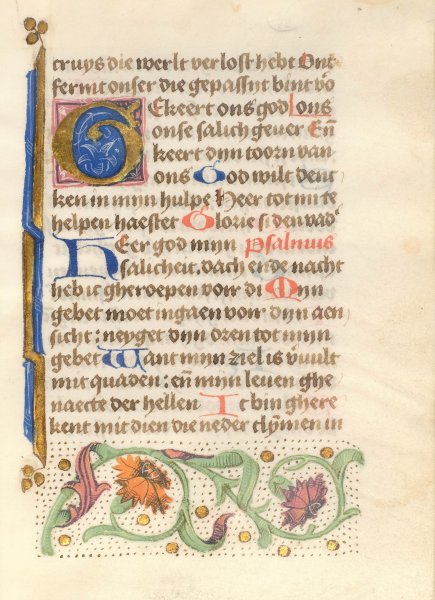 cruys die werlt verlost hebt Ont
fermt onser die gepassyt bint vo
GEkeert ons god Cons
onse salich gever En
keert dyn toorn van
ons God wilt denc
ken in myn hulpe Heer tot mi te
helpen haestet Glorie si den vad
HEer god myn Psalmus
salicheit, dach ende nacht
heb ic gheroepen voir di Myn
gebet moet ingaen voir dyn aen
sicht: neyget dyn oren tot myn
gebet Want myn ziel is vuult
mit quaden: en myn leven ghe
naecte der hellen Ic bin ghere
kent mit dien die neder clymen in